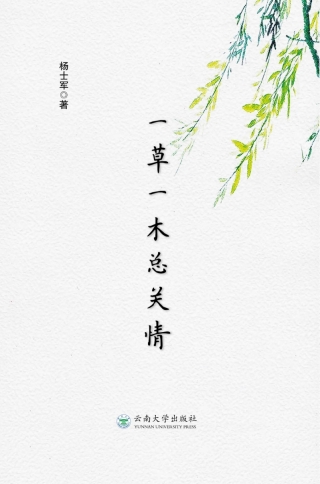 杨士军◎著
一草一木总关情
云南大学出版社
YUNNAN UNIVERSITY PRESS